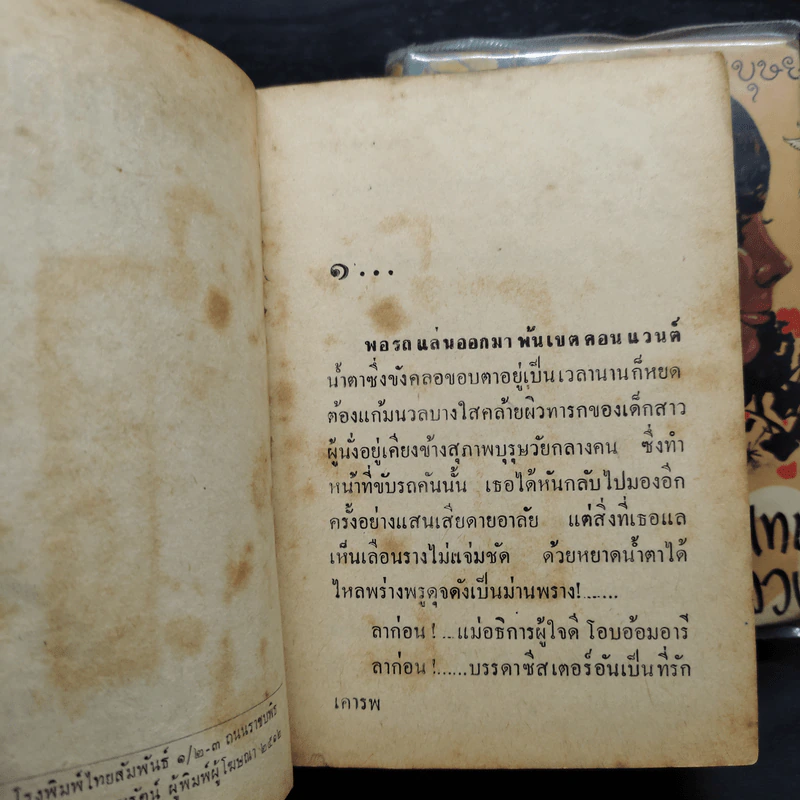 โรงพิมพ์ไทยสัมพันธ์ ๑/๒-๓ ถนนราชบพิธ
ผู้พิมพ์ผู้โฆษณา ๒๕๑๒
๑...
พอรถแล่นออกมาพ้นเขตคอนแวนต์
น้ำตาซึ่งขังคลอขอบตาอยู่เป็นเวลานานก็หยด
ต้องแก้มนวลบางใสคล้ายผิวทารกของเด็กสาว
ผู้นั่งอยู่เคียงข้างสุภาพบุรุษวัยกลางคน ซึ่งทำ
หน้าที่ขับรถคันนั้น เธอได้หันกลับไปมองอีก
ครั้งอย่างแสนเสียดายอาลัย แต่สิ่งที่เธอแล
เห็นเลือนรางไม่แจ่มชัด ด้วยหยาดน้ำตาได้
ไหลพร่างพรูดุจดังเป็นม่านพราง!......
ลาก่อน !...แม่อธิการผู้ใจดี โอบอ้อมอารี
ลาก่อน !......บรรดาซีสเตอร์อันเป็นที่รัก
เคารพ